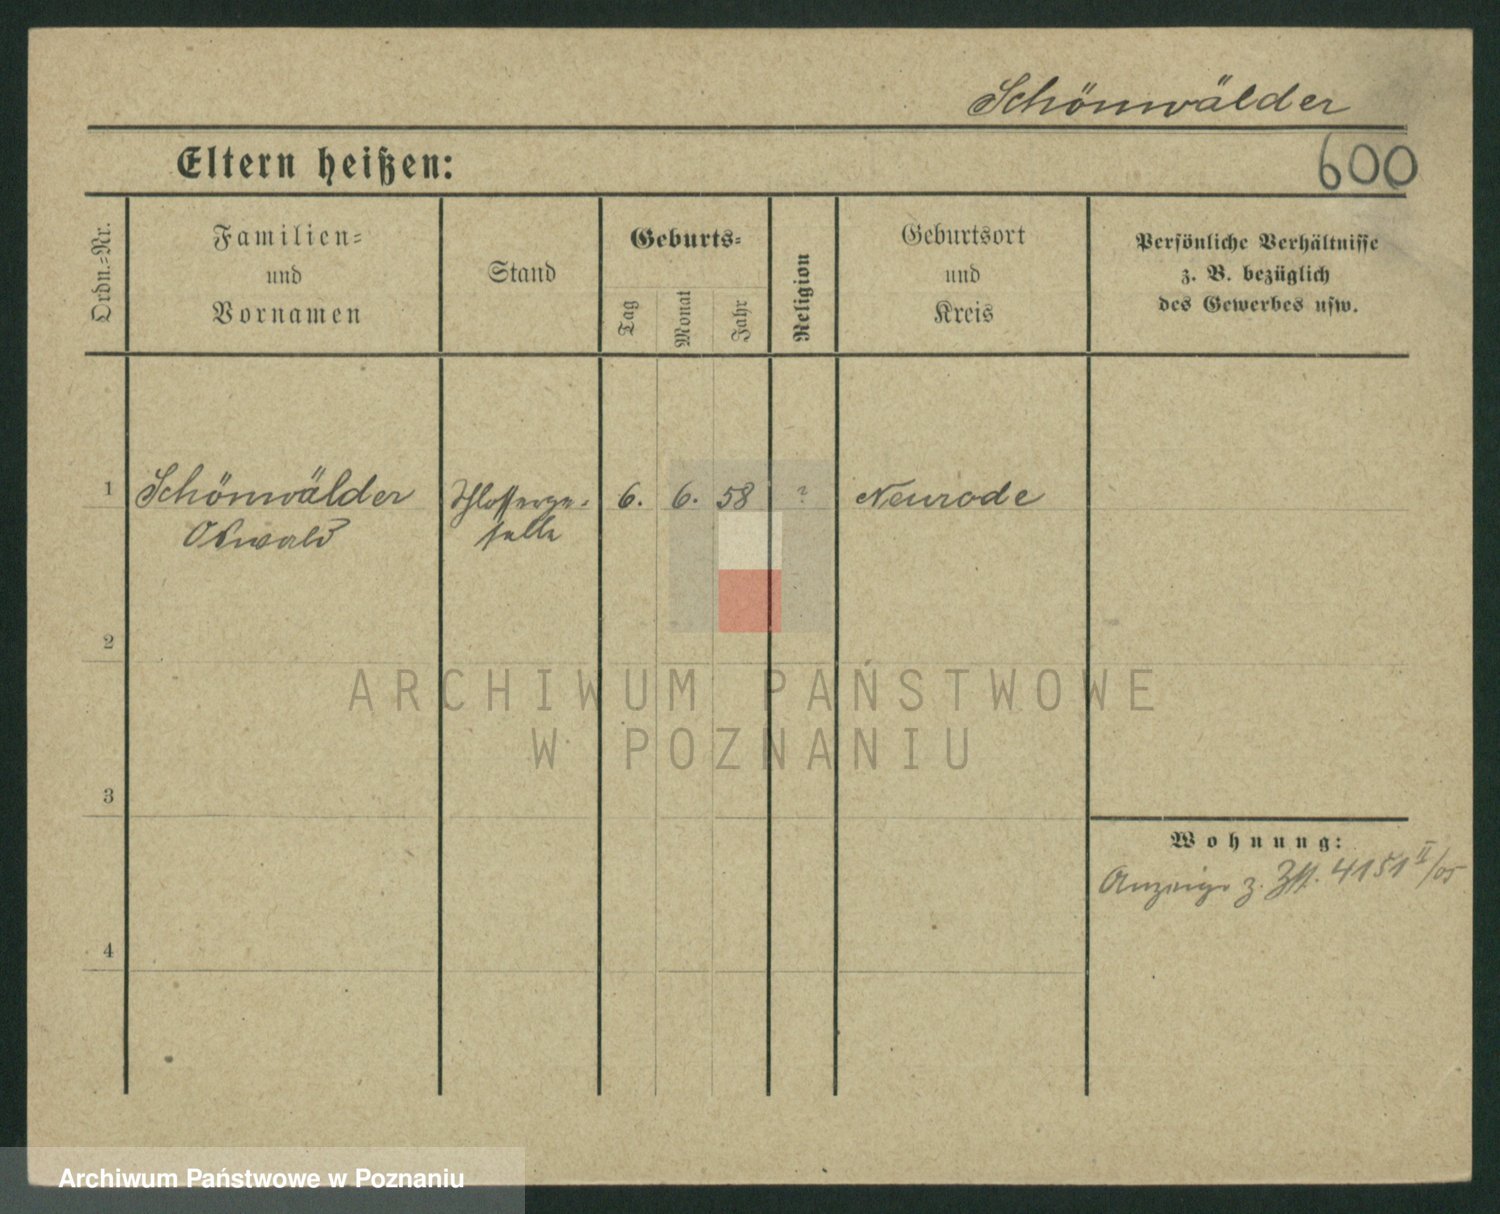 Schönwälder
Eltern heißen:
600
Ordn.=Nr.
Familien=
und
Vornamen
Stand
Geburts=
Tag
Monat
Jahr
Religion
Geburtsort
und
Kreis
Persönliche Verhältnisse
z. B. bezüglich
des Gewerbes usw.
1 Schönwälder Schlosserge= 6. 6. 58 ? Neurode
Oswald selle
2
ARCHIWUM PAŃSTWOWE
W POZNANIU
3
Wohnung:
Anzeige z. 4151 II/05
4
Archiwum Państwowe w Poznaniu